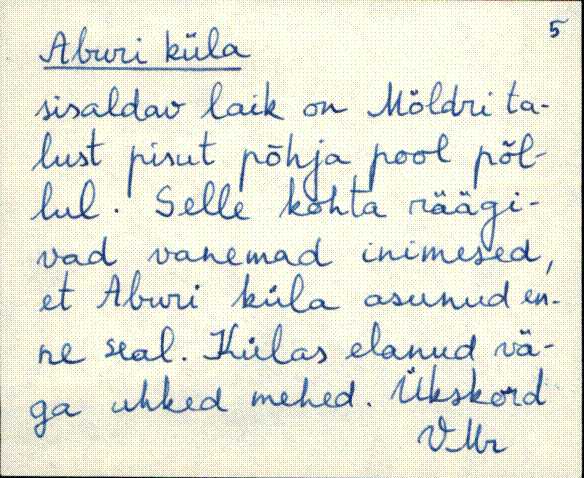 5
Aburi küla
sisaldav laik on Möldri ta-
lust pisut põhja pool põl-
lul. Selle kohta räägi-
vad vanemad inimesed,
et Aburi küla asunud en-
ne seal. Külas elanud vä-
ga uhked mehed. Ükskord
VMr